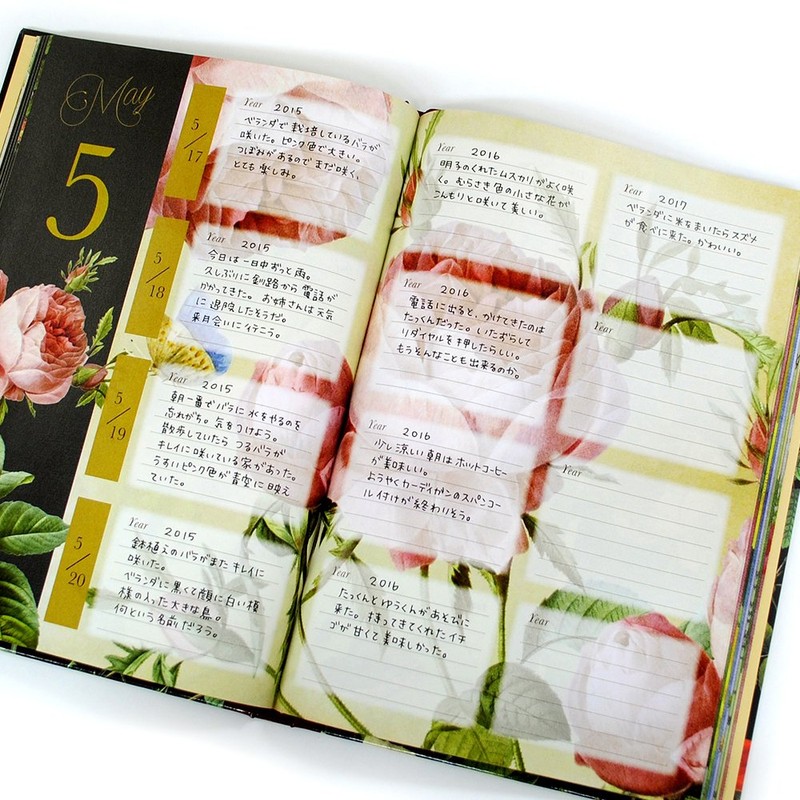 May
5
5/17
Year 2015
ベランダで栽培しているバラが
咲いた。ピンク色で大きい。
つぼみがあるのでまだ咲く、
とても楽しみ。
5/18
Year 2015
今日は一日中ずっと雨。
久しぶりに釧路から電話が
かかってきた。お姉さんは元気
に退院したそうだ。
来月会いに行こう。
5/19
Year 2015
朝一番でバラに水をやるのを
忘れがち。気をつけよう。
散歩していたらつるバラが
キレイに咲いている家があった。
うすいピンク色が青空に映え
ていた。
5/20
Year 2015
鉢植えのバラがまたキレイに
咲いた。
ベランダに黒くて顔に白い模
様の入った大きな鳥。
何という名前だろう。
Year 2016
明子のくれたムスカリがよく咲
く。むらさき色の小さな花が
こんもりと咲いて美しい。
Year 2016
電話に出ると、かけてきたのは
たっくんだった。いたずらして
リダイヤルを押したらしい。
もうそんなことも出来るのか。
Year 2016
少し涼しい朝はホットコーヒー
が美味しい。
ようやくカーディガンのスパンコー
ル付けが終わりそう。
Year 2016
たっくんとゆうくんがあそびに
来た。持ってきてくれたイチ
ゴが甘くて美味しかった。
Year 2017
ベランダに米をまいたらスズメ
が食べに来た。かわいい。
Year
Year
Year